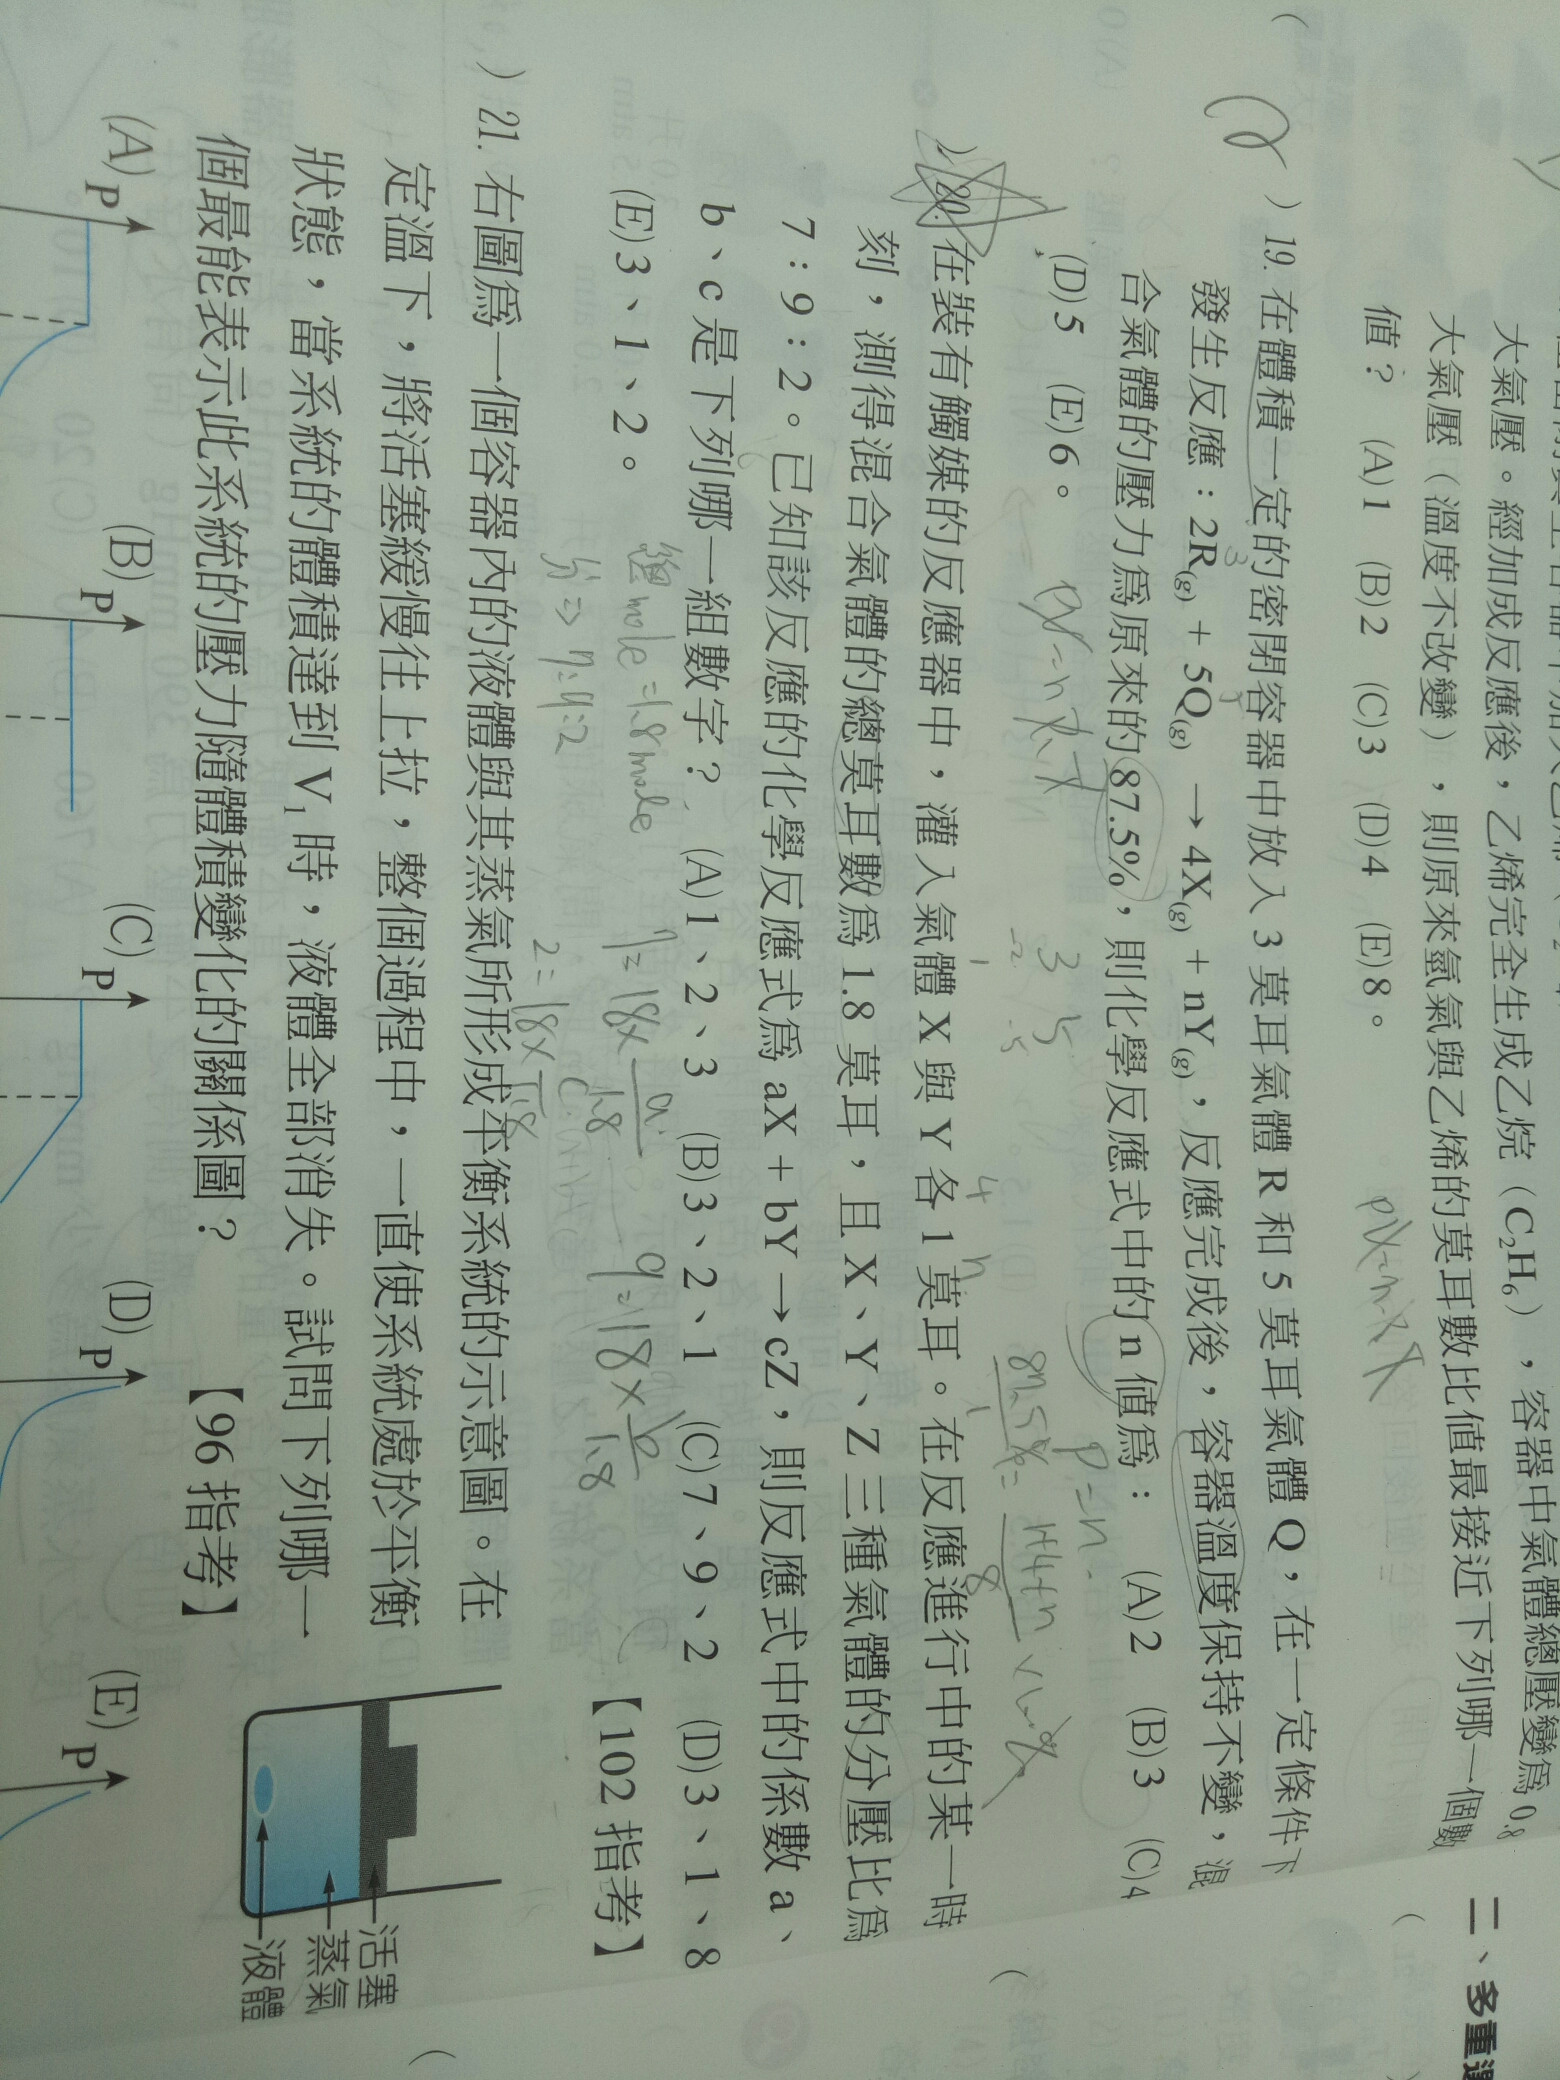 大氣壓。經加成反應後，乙烯完全生成乙烷（C₂H₆），容器中氣體總壓變為0.8
大氣壓（溫度不改變），則原來氫氣與乙烯的莫耳數比值最接近下列哪一個數
值？ (A)1 (B)2 (C)3 (D)4 (E)8。
) 19. 在體積一定的密閉容器中放入 3 莫耳氣體 R 和 5 莫耳氣體 Q，在一定條件下
發生反應：2R(g) + 5Q(g) → 4X(g) + nY(g)，反應完成後，容器溫度保持不變，混
合氣體的壓力為原來的 87.5%，則化學反應式中的 n 值為： (A)2 (B)3 (C)4
(D)5 (E)6。
3 5
P = n
) 20. 在裝有觸媒的反應器中，灌入氣體 X 與 Y 各 1 莫耳。在反應進行中的某一時
刻，測得混合氣體的總莫耳數為 1.8 莫耳，且 X、Y、Z 三種氣體的分壓比為
7：9：2。已知該反應的化學反應式為 aX + bY → cZ，則反應式中的係數 a、
b、c 是下列哪一組數字？ (A)1、2、3 (B)3、2、1 (C)7、9、2 (D)3、1、8
(E)3、1、2。 【102 指考】
總mole = 1.8mole
7 = 18 × a/1.8
9 = 18 × b/1.8
2 = 18 × c/1.8
) 21. 右圖為一個容器內的液體與其蒸氣所形成平衡系統的示意圖。在
定溫下，將活塞緩慢往上拉，整個過程中，一直使系統處於平衡
狀態，當系統的體積達到 V₁ 時，液體全部消失。試問下列哪一
個最能表示此系統的壓力隨體積變化的關係圖？ 【96 指考】
活塞
蒸氣
液體
(A) P
(B) P
(C) P
(D) P
(E) P
二、多重選